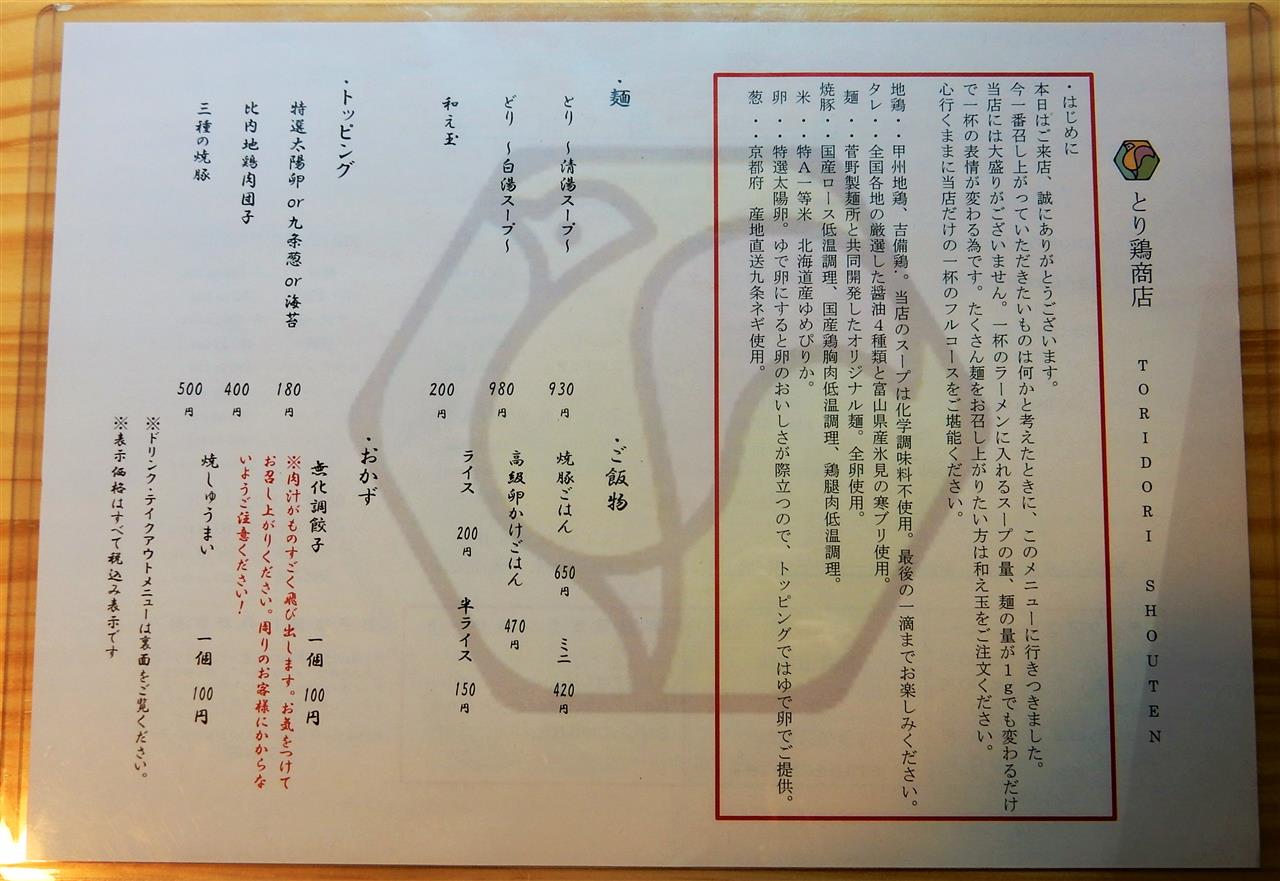 とり鶏商店 TORIDORI SHOUTEN
・はじめに
本日はご来店、誠にありがとうございます。
今一番召し上がっていただきたいものは何かと考えたときに、このメニューに行きつきました。
当店には大盛りがございません。一杯のラーメンに入れるスープの量、麺の量が1gでも変わるだけ
で一杯の表情が変わる為です。たくさん麺をお召し上がりたい方は和え玉をご注文ください。
心行くままに当店だけの一杯のフルコースをご堪能ください。
地鶏・・甲州地鶏、吉備鶏、。当店のスープは化学調味料不使用。最後の一滴までお楽しみください。
タレ・・全国各地の厳選した醤油4種類と富山県産氷見の寒ブリ使用。
麺・・菅野製麺所と共同開発したオリジナル麺。全卵使用。
焼豚・・国産ロース低温調理、国産鶏胸肉低温調理、鶏腿肉低温調理。
米・・特A一等米 北海道産ゆめぴりか。
卵・・特選太陽卵。ゆで卵にすると卵のおいしさが際立つので、トッピングではゆで卵でご提供。
葱・・京都府 産地直送九条ネギ使用。
・麺
とり ～清湯スープ～ 930円
どり ～白湯スープ～ 980円
和え玉 200円
・ご飯物
焼豚ごはん 650円 ミニ 420円
高級卵かけごはん 470円
ライス 200円 半ライス 150円
・トッピング
特選太陽卵 or 九条葱 or 海苔 180円
比内地鶏肉団子 400円
三種の焼豚 500円
・おかず
無化調餃子 一個 100円
※肉汁がものすごく飛び出します。お気をつけて
お召し上がりください。周りのお客様にかからな
いようご注意ください!
焼しゅうまい 一個 100円
※ドリンク・テイクアウトメニューは裏面をご覧ください。
※表示価格はすべて税込み表示です